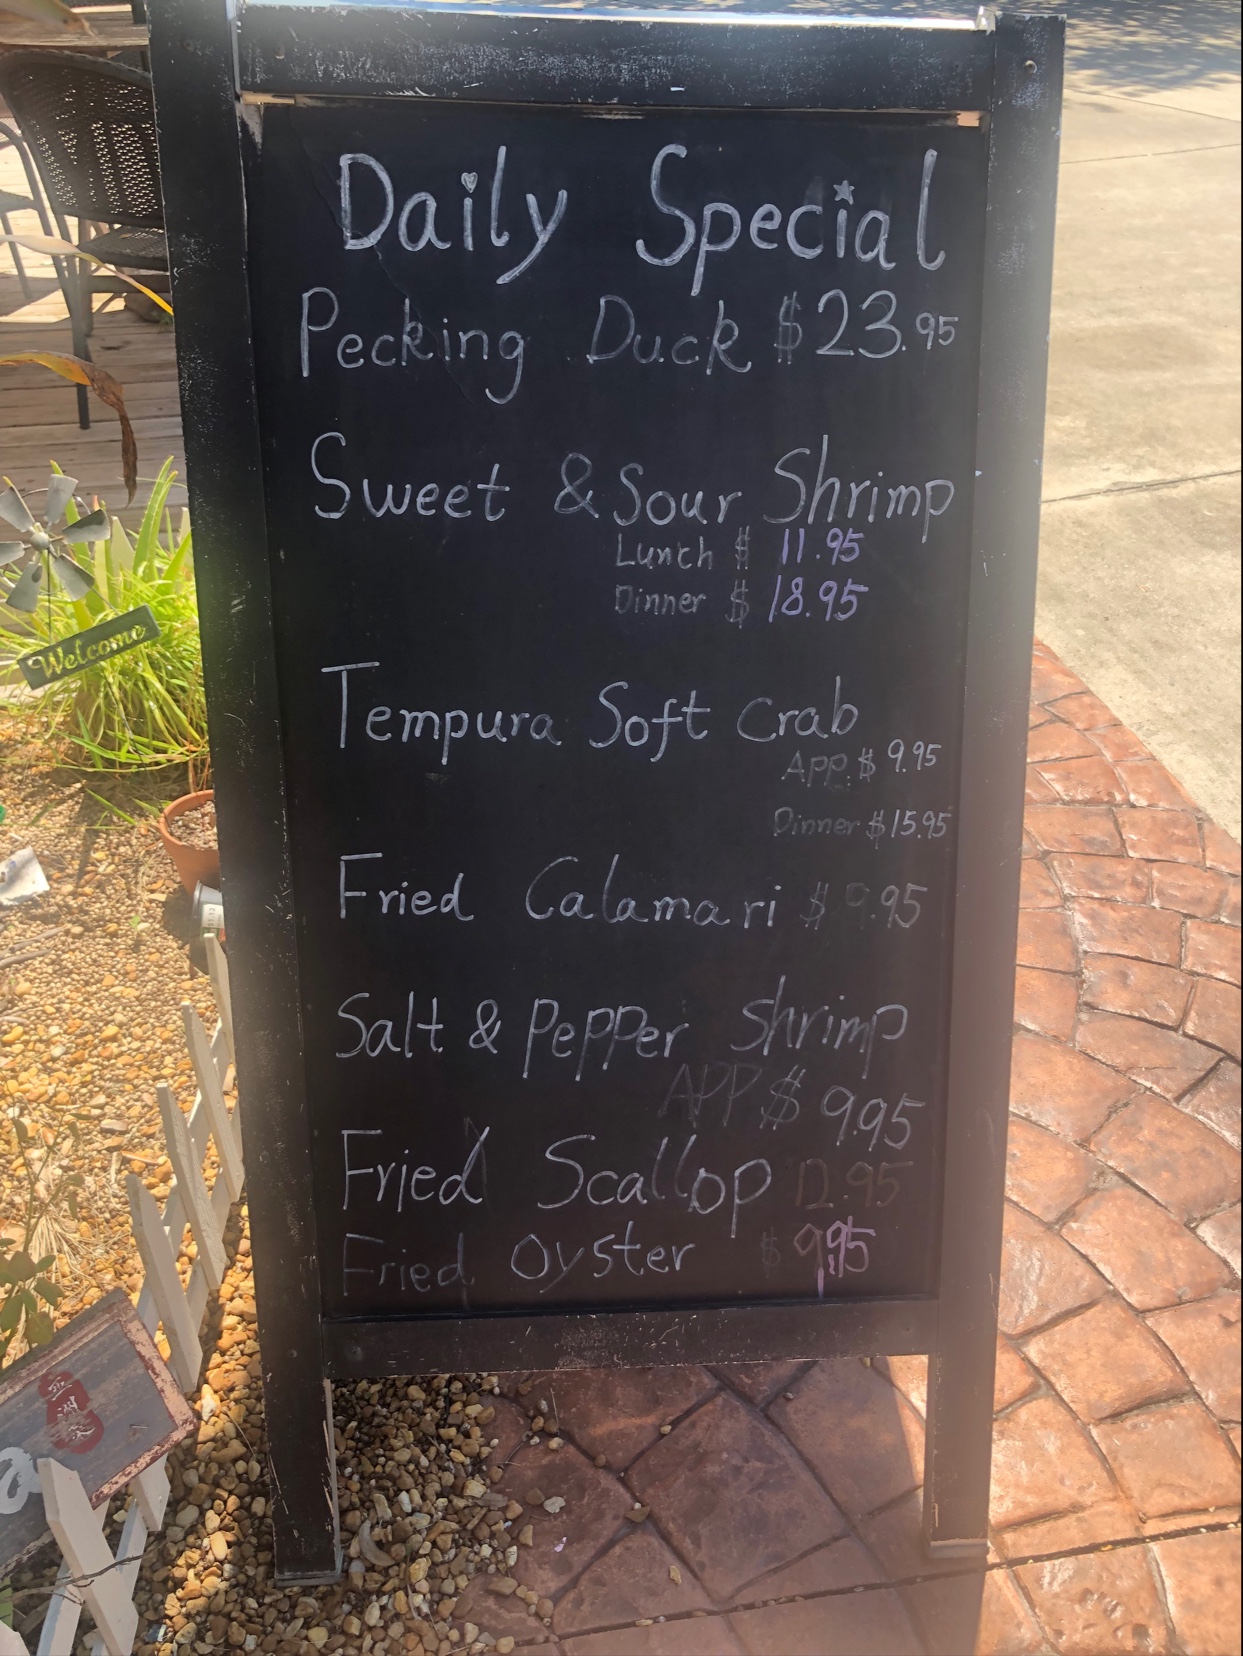 Daily Special
Pecking Duck $23.95
Sweet & Sour Shrimp
Lunch $ 11.95
Dinner $ 18.95
Tempura Soft Crab
App. $ 9.95
Dinner $15.95
Fried Calamari $ 9.95
Salt & Pepper Shrimp
APP $ 9.95
Fried Scallop 12.95
Fried Oyster $ 9.95
Welcome